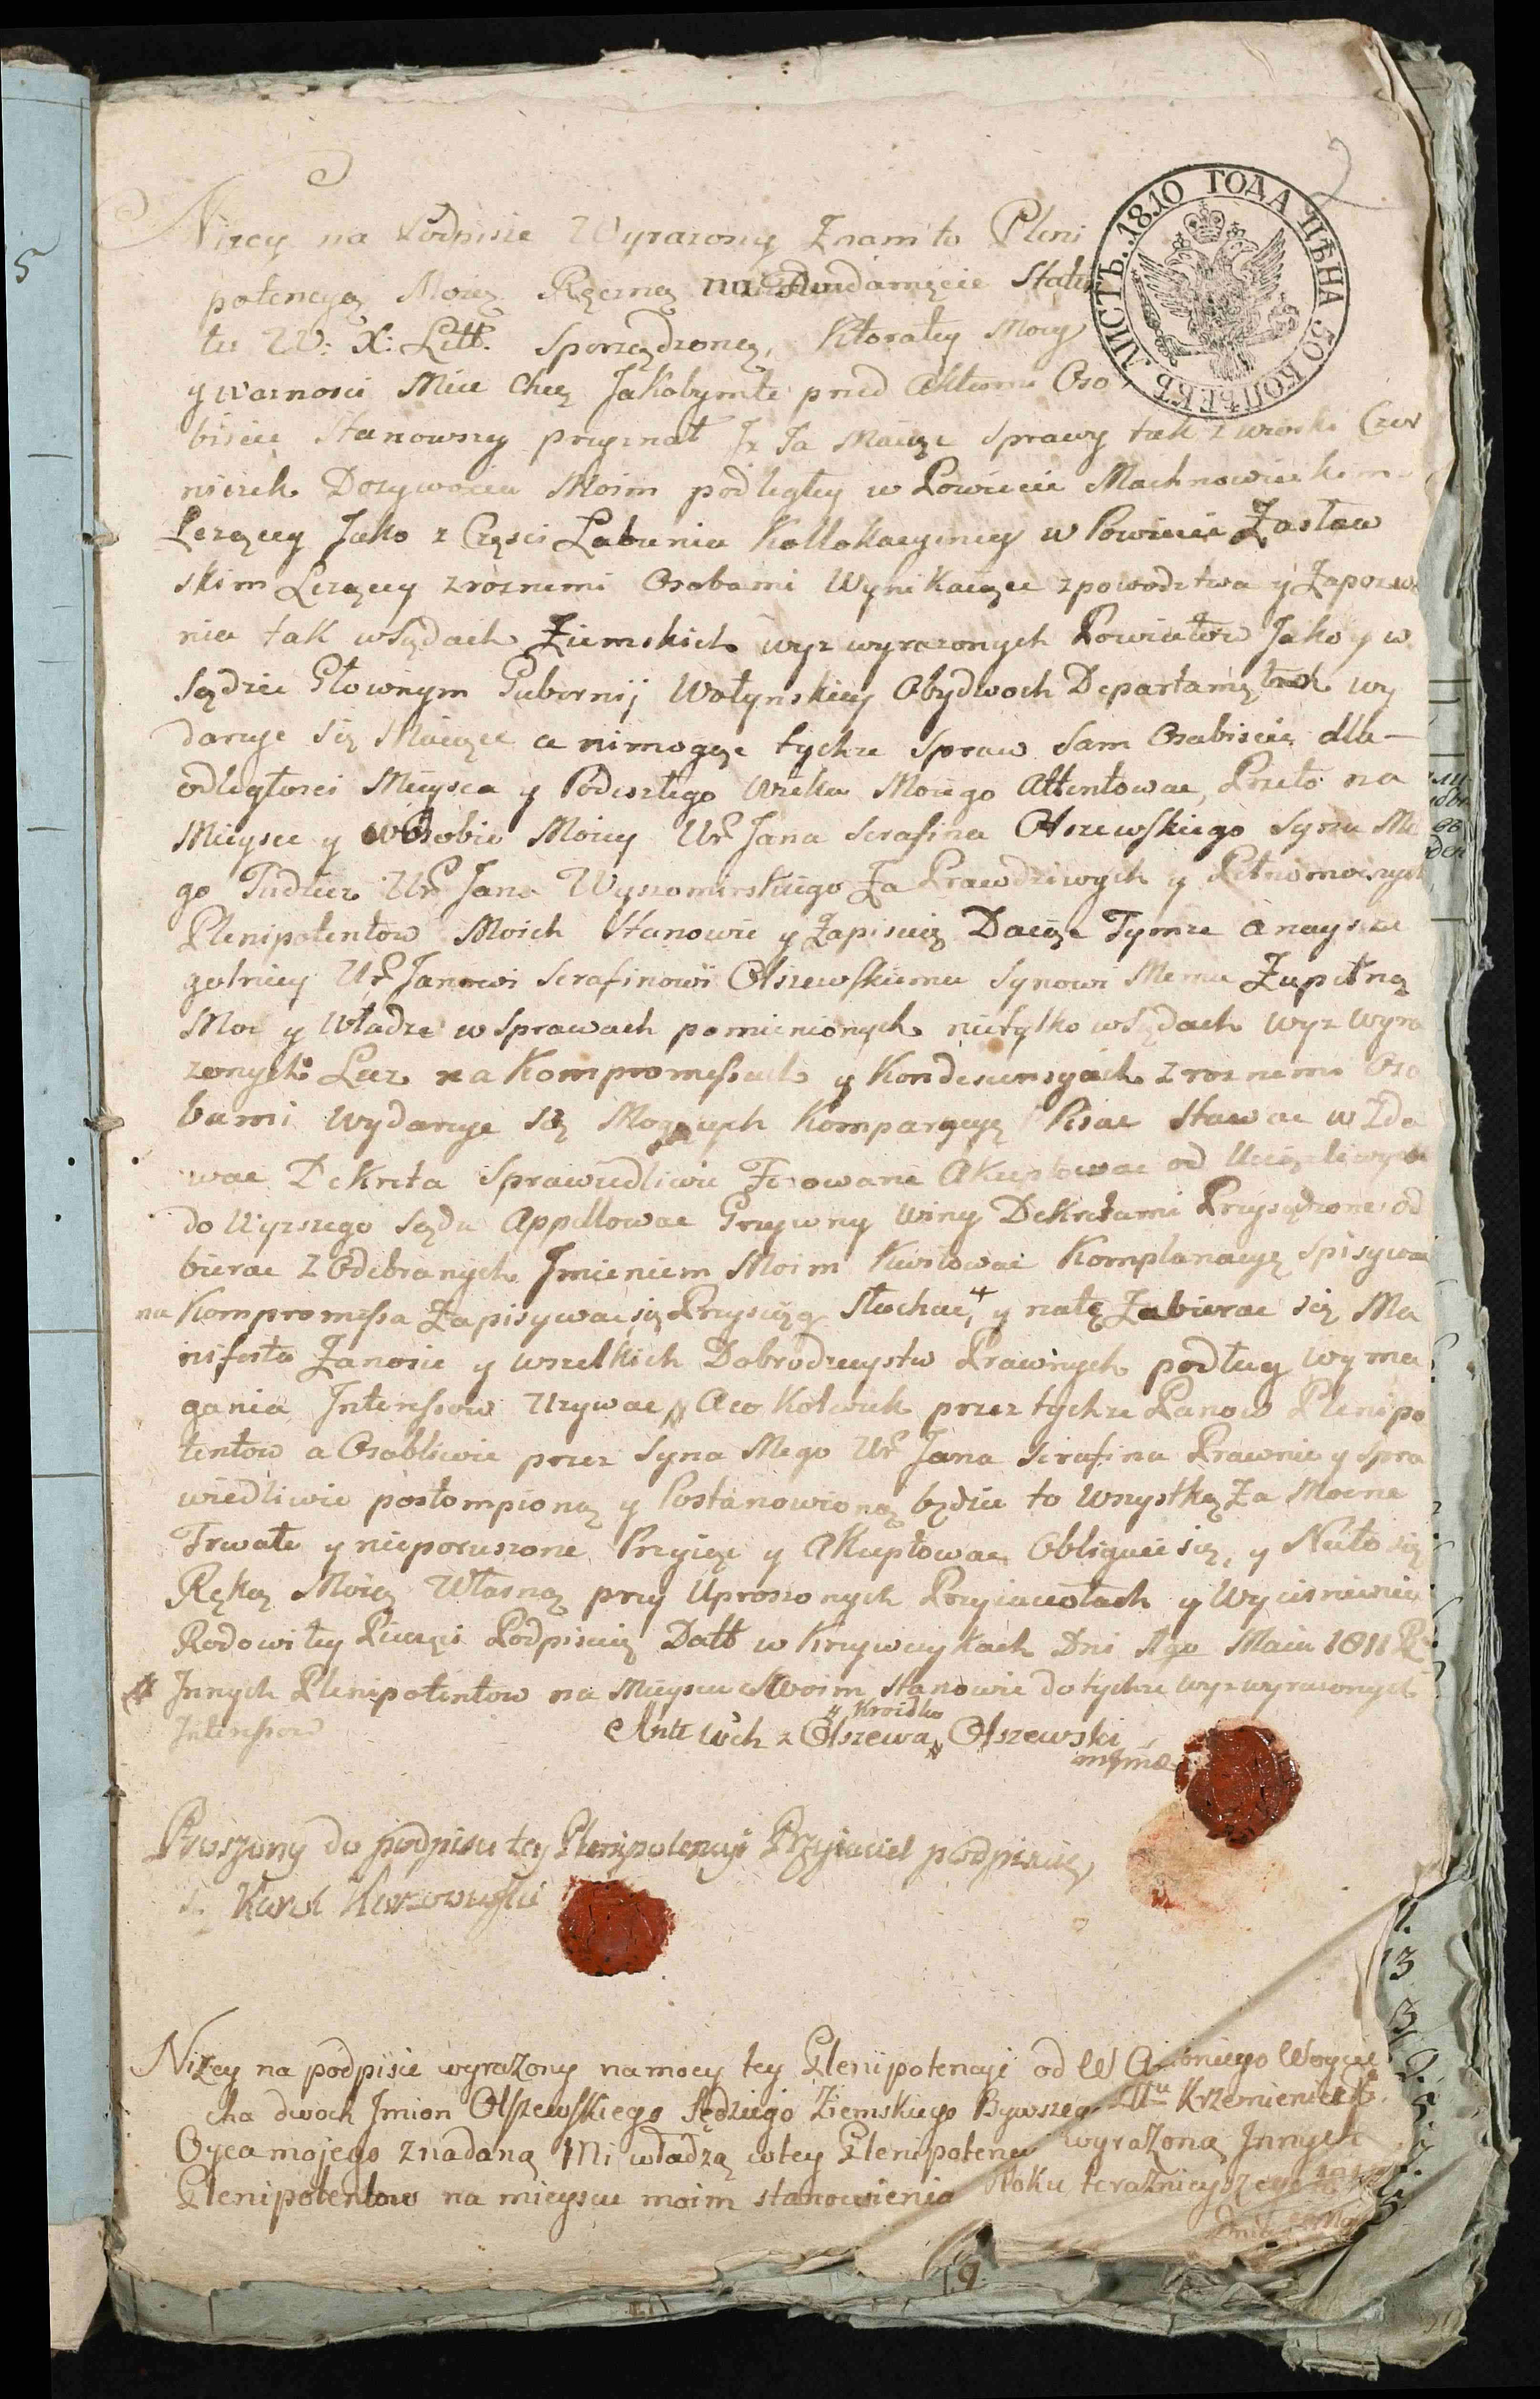 2
ЛИСТЪ. 1810 ГОДА ЦѢНА 50 КОПѢЕКЪ
5
Nizey na Podpisie Wyrazony Znam to Pleni
potencyą Moią Ręczną na Fundamęcie Statu
tu W: X: Litt. Sporządzoną, Ktorałey Mocy
y waznosci Miec chcę Jakobymłe przed Aktami Oso
biscie Stanowszy przyznał Iz Ja Maiąc Sprawy tak z wioski Czer
niszek Dozywociu Moim podległey w Powiecie Machnowieckim
Lezącey Jako z Częsci Łabunia Kollokacyiney w Powiecie Zasław
skim Lezącey z roznemi Osobami Wynikaiące z powodztwa y Zapozwa
nia tak w Sądach Ziemskich wyz wyrazonych Powiatow Jako y w
Sądzie Głownym Gubernij Wołynskiey Obydwoch Departamętach wy
darzyc się Maiące a nimogąc tychze Spraw Sam Osabiscie dla
odległosci Mieysca y Podeszłego Wieku Moiego Attentowac, Przeto na
Mieysce y w Osobie Moiey Ur Jana Serafina Olszewskiego Syna Me
go Tudziez Ur Jana Wyszomirskiego Za Prawdziwych y Pełnomocnych
Plenipotentow Moich Stanowie y Zapisuię Daiąc Tymze a nayszcze
gulniey Ur Janowi Serafinowi Olszewskiemu Synowi Memu Zupełną
Moc y Władze w Sprawach pomienionych nietylko w Sądach wyz wyra
zonych Lecz na Kompromessach y Kondescensyach z roznemi Oso
bami wydarzyc się Mogących Komparycyę Pisac Stawac w Zda
wac Dekreta Sprawiedliwie Ferowane Akceptowac od Uciązliwych
do Wyzszego Sądu Appellowac Grzywny Winy Dekretami Przysądzone Od
bierac z Odebranych Jmieniem Moim Kwitowac Komplanacyę Spisywac
na Kompromessa Zapisywac się Przysięgą Słuchac, y nałę Zabierac się Ma
nifesta Zanosic y wszelkich Dobrodzieystw Prawnych podług wyma
gania Interessow Uzywac A co Kolwiek przez tychze Panow Plenipo
tentow a Osabliwie przez Syna Mego Ur Jana Serafina Prawnie y Spra
wiedliwie postompioną y Postanowioną będzie to Wszystką Za Mocne
Trwałe y nieporuszone Przyiąc y Akceptowac Obliguie się, y Na to się
Ręką Moią Własną przy Uproszonych Przyiaciołach y Wycisnieniu
Rodowitey Pieczęci Podpisuię Datt w Krzywczykach Dni 1go Maia 1811 R
Jnnych Plenipotentow na Mieyscu Swoim stanowic do tychze wyz wyrazonych
Interessow
y Kroidko
Ant: Woch z Olszewa Olszewski
mppria
Proszony do podpisu tey Plenipotencyi Przyiaciel podpisuię
się Karol
Nizey na podpisie wyrazony na mocy tey Plenipotencyi od W Antoniego Woycie
cha dwoch Jmion Olszewskiego Sędziego Ziemskiego Bywszego Ptu Krzemienieck
Oyca mojego z nadaną Mi władzą w tey Plenipotency wyrazoną Jnnych
Plenipotentow na mieyscu moim stanowienia Roku teraznieyszego
Dnia